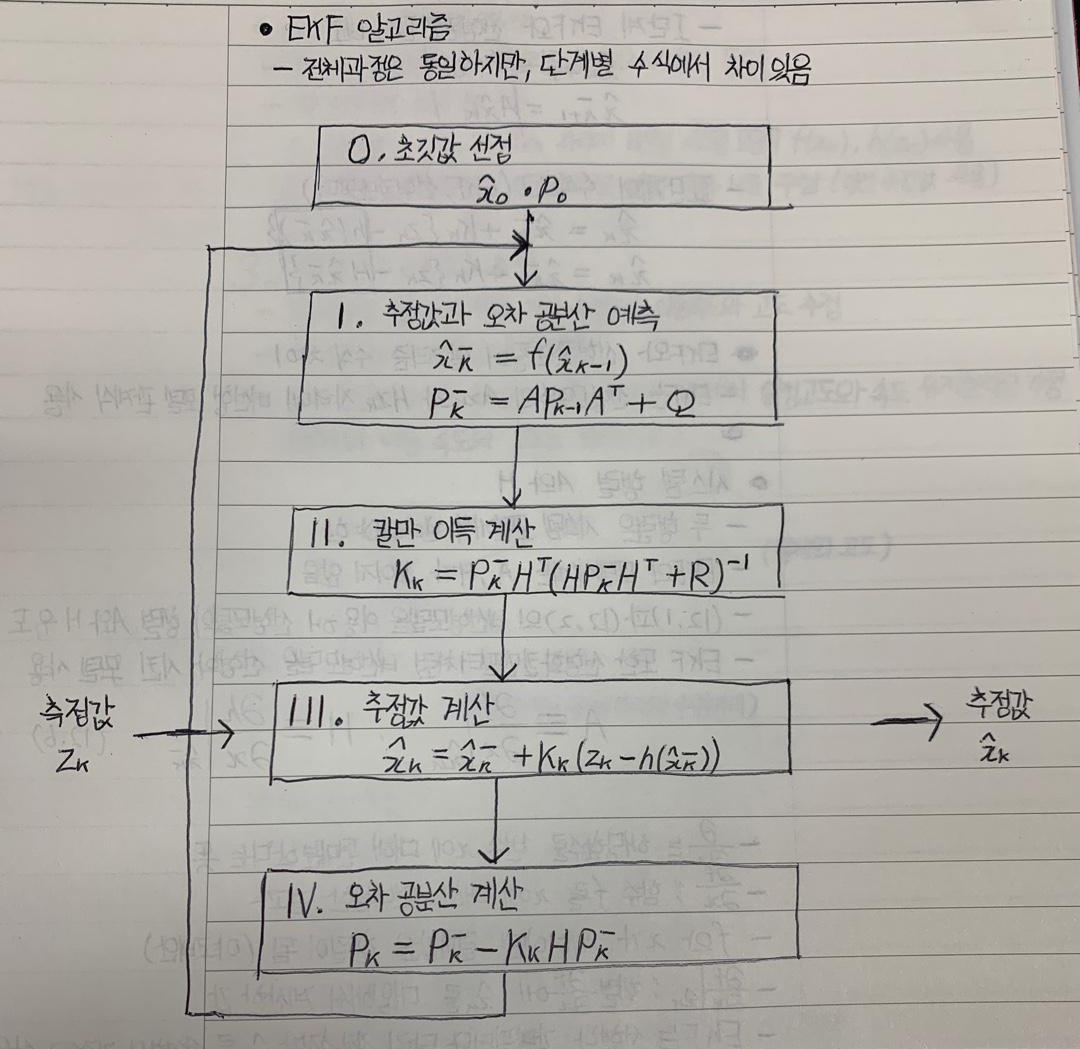 • EKF 알고리즘
- 전체과정은 동일하지만, 단계별 수식에서 차이 있음
0. 초깃값 선점
x̂₀ • P₀
I. 추정값과 오차 공분산 예측
x̂ₖ⁻ = f(x̂ₖ₋₁)
Pₖ⁻ = APₖ₋₁Aᵀ + Q
II. 칼만 이득 계산
Kₖ = Pₖ⁻Hᵀ(HPₖ⁻Hᵀ + R)⁻¹
측정값
zₖ
III. 추정값 계산
x̂ₖ = x̂ₖ⁻ + Kₖ(zₖ - h(x̂ₖ⁻))
추정값
x̂ₖ
IV. 오차 공분산 계산
Pₖ = Pₖ⁻ - KₖHPₖ⁻